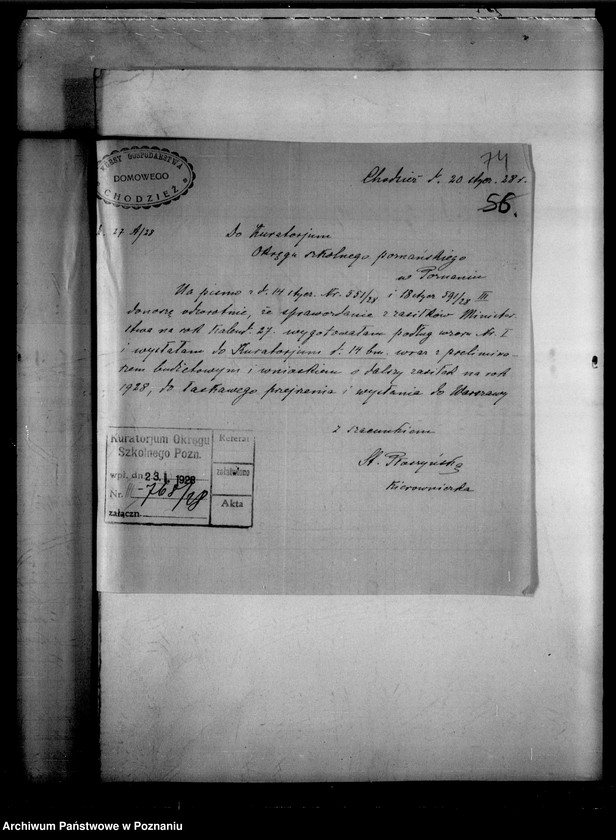 74
KURSY GOSPODARSTWA
DOMOWEGO
CHODZIEŻ
Chodzież d. 20 stycz. 28 r.
56.
27 A/28
Do Kuratorjum
Okręgu szkolnego poznańskiego
w Poznaniu
Na pismo z d. 14 stycz. Nr. 551/28 i 18 stycz 591/28 III
donoszę odwrotnie, że sprawozdanie z zasiłków Minister-
stwa na rok kalend. 27. wygotowałam podług wzoru Nr. I
i wysłałam do Kuratorjum d. 14 bm. wraz z prelimina-
rzem budżetowym i wnioskiem o dalszy zasiłek na rok
1928, do łaskawego przejrzenia i wysłania do Warszawy
z szacunkiem
St. Ptaszyńska
Kierowniczka
Kuratorjum Okręgu
Szkolnego Pozn.
wpł. dn 23. I. 1928
Nr. III-768/28
załączn.
Referat
załatwiono
Akta
Archiwum Państwowe w Poznaniu